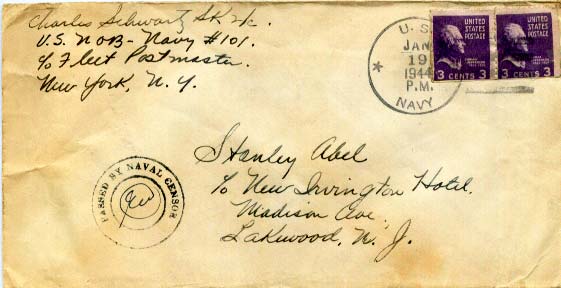 Charles Schwartz SK 2/c.
U.S. NOB - Navy #101.
c/o Fleet Postmaster
New York, N.Y.
U. S.
JAN
19
1944
P.M.
NAVY
UNITED STATES POSTAGE
3 CENTS 3
UNITED STATES POSTAGE
3 CENTS 3
PASSED BY NAVAL CENSOR
Stanley Abel
c/o New Irvington Hotel.
Madison Ave.
Lakewood, N. J.